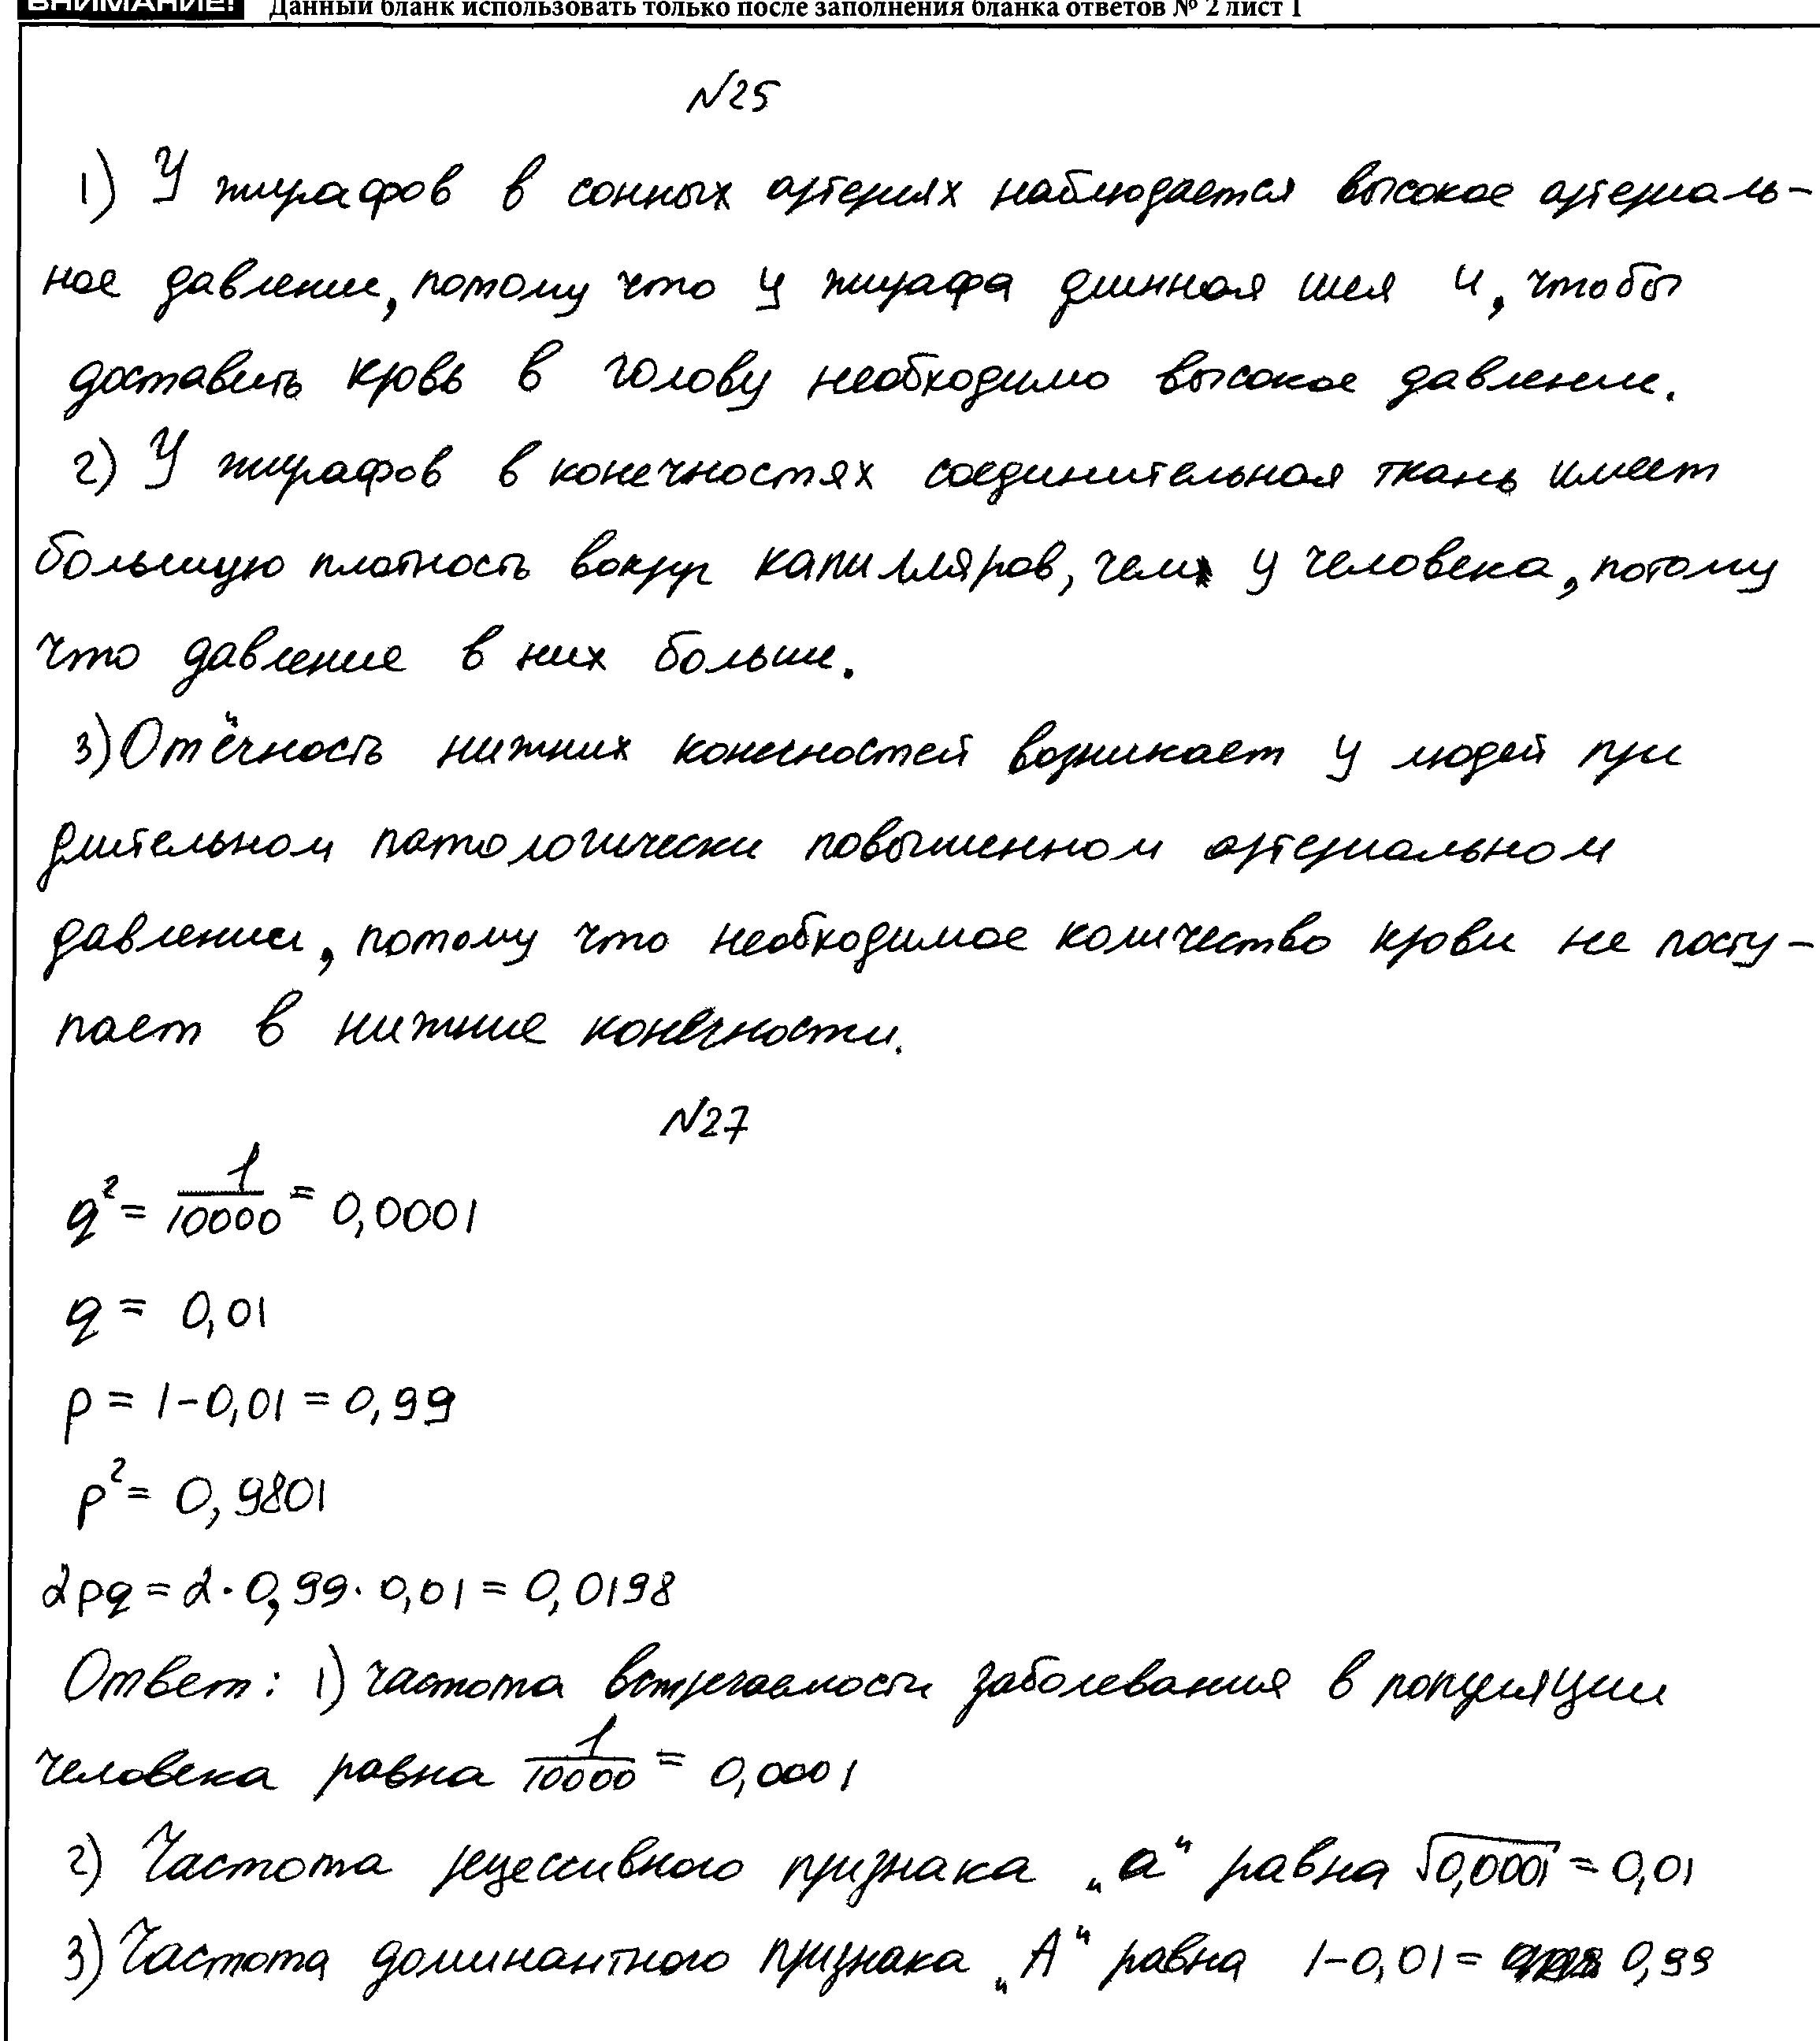 ВНИМАНИЕ! Данный бланк использовать только после заполнения бланка ответов № 2 лист 1
№25
1) У жирафов в сонных артериях наблюдается высокое артериаль-
ное давление, потому что у жирафа длинная шея и, чтобы
доставить кровь в голову необходимо высокое давление.
2) У жирафов в конечностях соединительная ткань имеет
большую плотность вокруг капилляров, чем у человека, потому
что давление в них больше.
3) Отёчность нижних конечностей возникает у людей при
длительном патологически повышенном артериальном
давлении, потому что необходимое количество крови не посту-
пает в нижние конечности.
№27
q² = 1/10000 = 0,0001
q = 0,01
p = 1-0,01 = 0,99
p² = 0,9801
2pq = 2·0,99·0,01 = 0,0198
Ответ: 1) частота встречаемости заболевания в популяции
человека равна 1/10000 = 0,0001
2) Частота рецессивного признака „а“ равна √0,0001 = 0,01
3) Частота доминантного признака „А“ равна 1-0,01 = 0,99